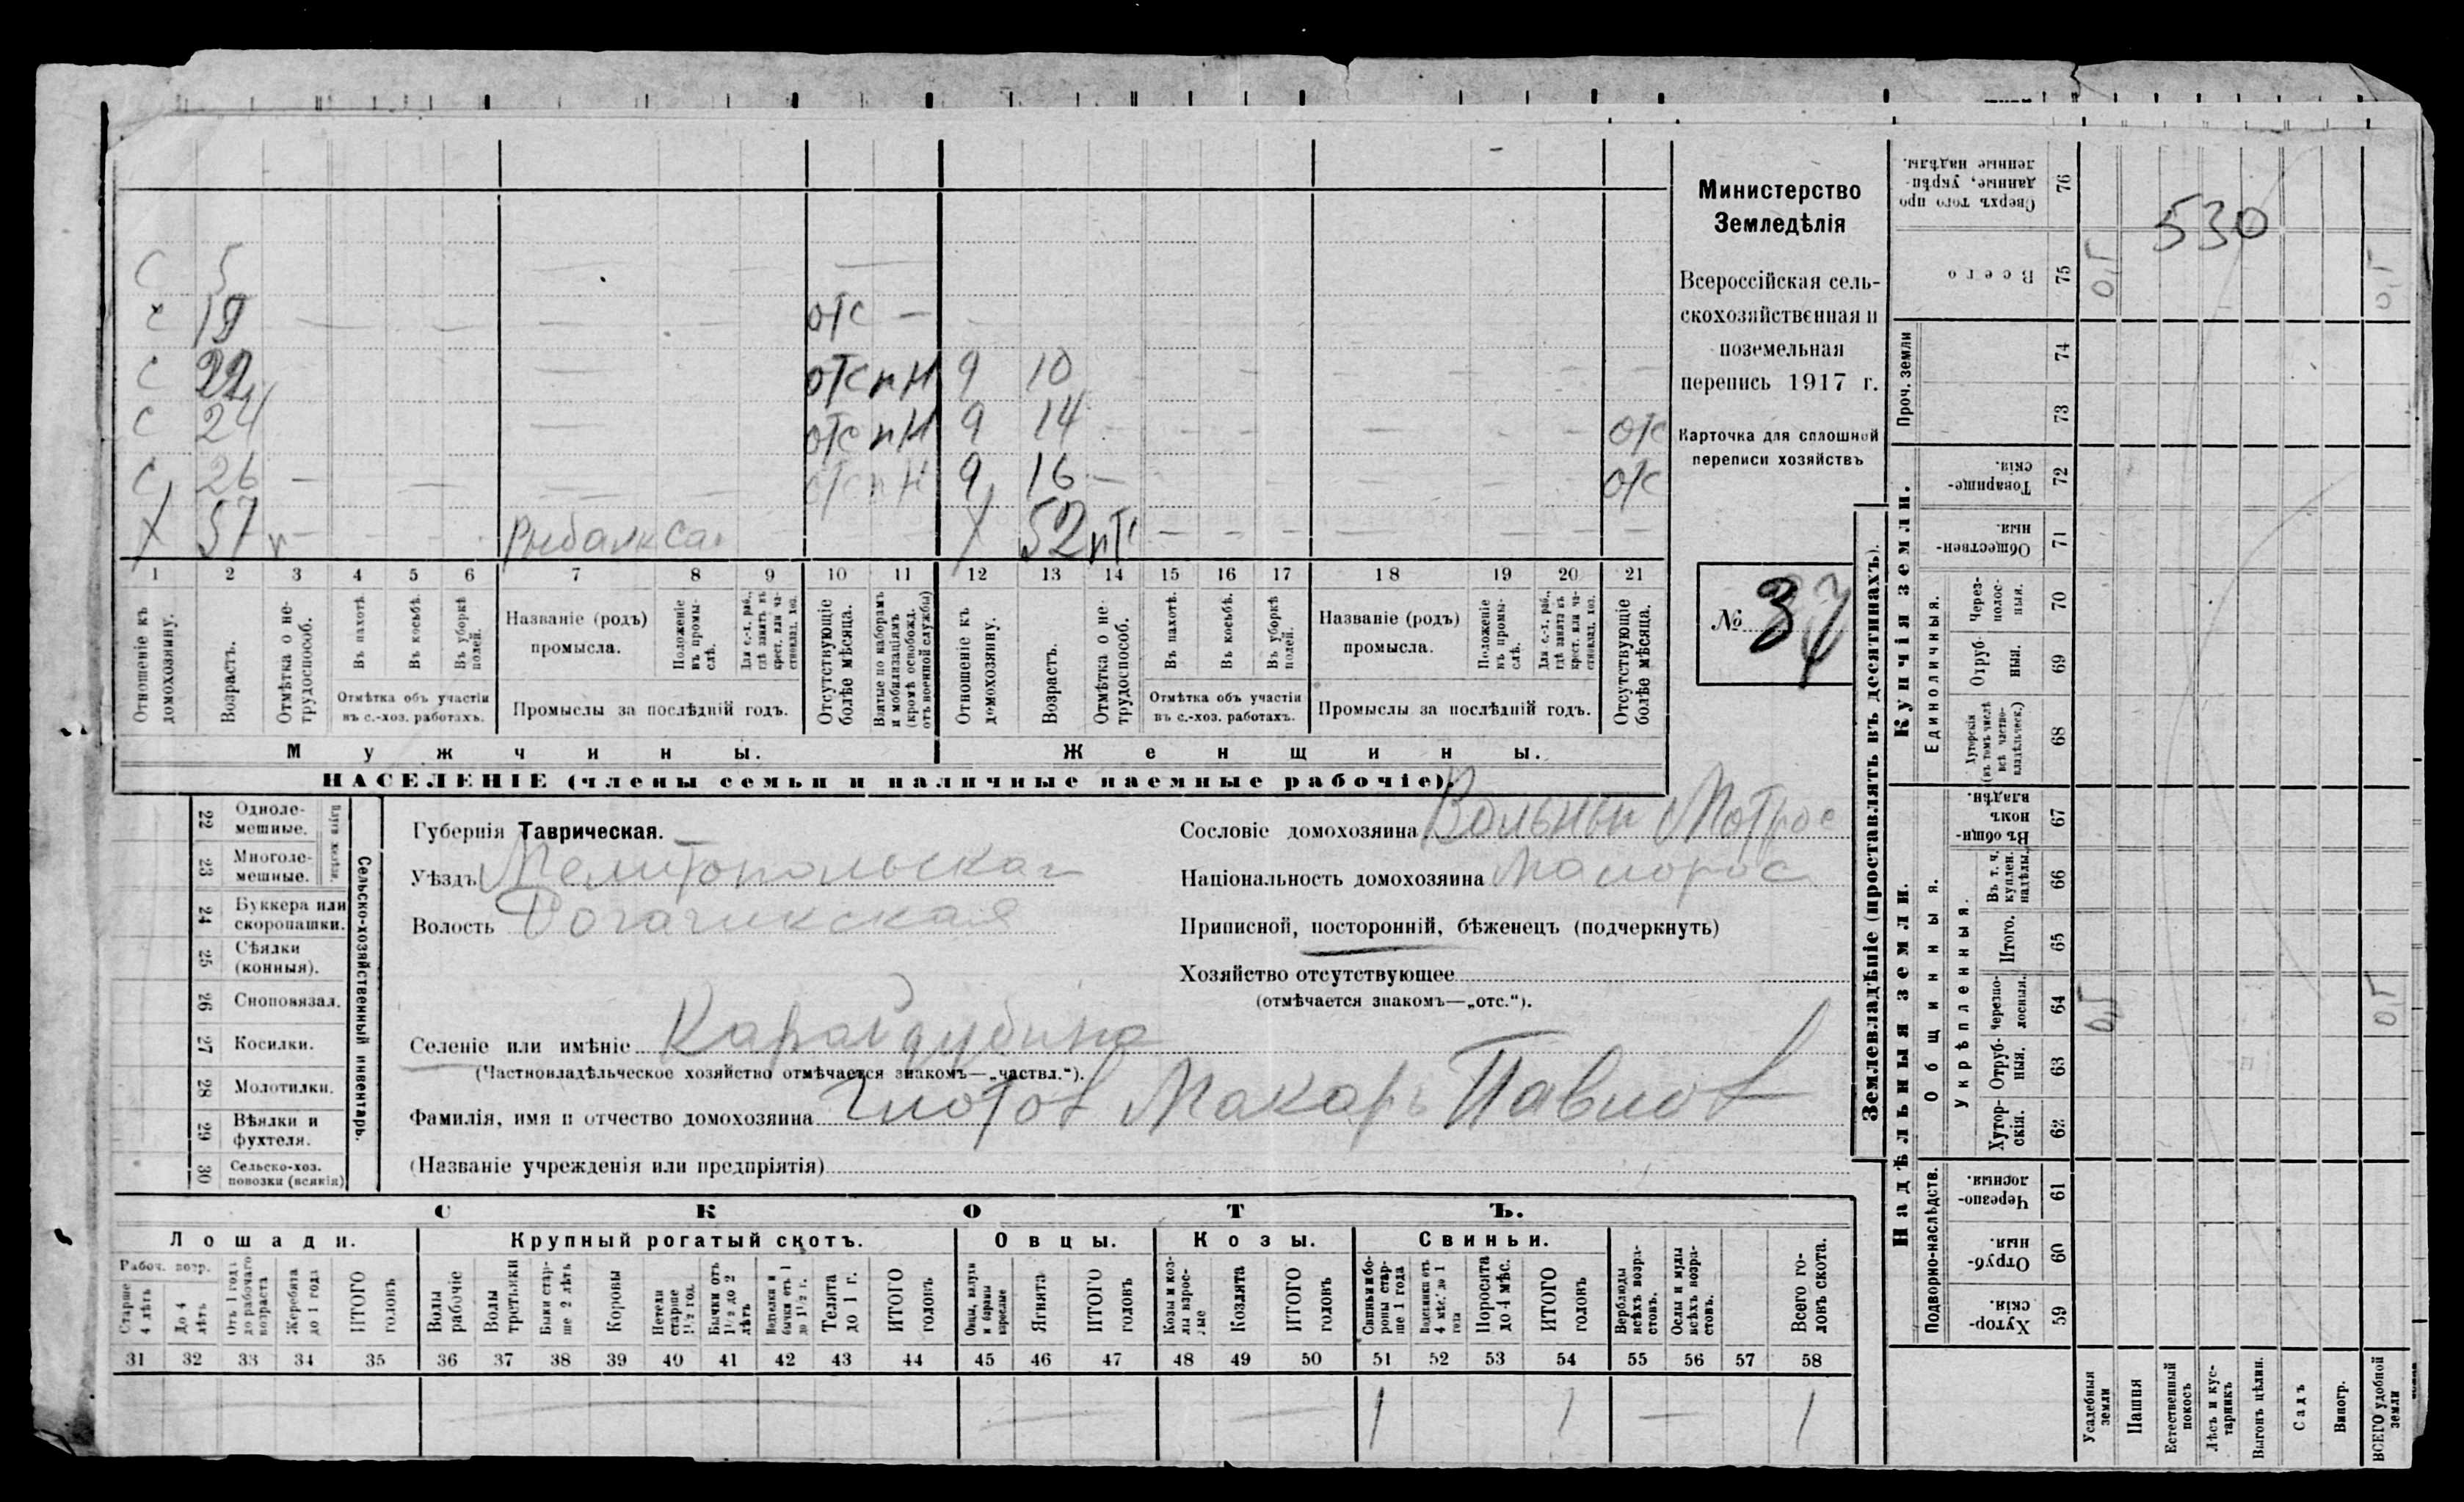 С 5
С 19 отс
С 22 отс пн 9 10
С 24 отс пн 9 14 отс
С 26 отс пн 9 16 отс
Х 57 Рыбалка Х 52 пт
1 2 3 4 5 6 7 8 9 10 11 12 13 14 15 16 17 18 19 20 21
Отношеніе къ домохозяину.
Возрастъ.
Отмѣтка о не-трудоспособ.
Въ пахотѣ.
Въ косьбѣ.
Въ уборкѣ полей.
Отмѣтка объ участіи въ с.-хоз. работахъ.
Названіе (родъ) промысла.
Положеніе въ промы-слѣ.
Для с.-х. раб., гдѣ занятъ въ крест. или ча-стновлад. хоз.
Промыслы за послѣдній годъ.
Отсутствующіе болѣе мѣсяца.
Взятые по наборамъ и мобилизаціямъ (кромѣ освобожд. отъ военной службы)
Отношеніе къ домохозяину.
Возрастъ.
Отмѣтка о не-трудоспособ.
Въ пахотѣ.
Въ косьбѣ.
Въ уборкѣ полей.
Отмѣтка объ участіи въ с.-хоз. работахъ.
Названіе (родъ) промысла.
Положеніе въ промы-слѣ.
Для с.-х. раб., гдѣ занята въ крест. или ча-стновлад. хоз.
Промыслы за послѣдній годъ.
Отсутствующіе болѣе мѣсяца.
Мужчины.
Женщины.
НАСЕЛЕНІЕ (члены семьи и наличные наемные рабочіе).
Министерство
Земледѣлія
Всероссійская сель-
скохозяйственная и
поземельная
перепись 1917 г.
Карточка для сплошной
переписи хозяйствъ
№ 37
22 Одноле-мешные.
23 Многоле-мешные.
24 Буккера или скоропашки.
25 Сѣялки (конныя).
26 Сноповязал.
27 Косилки.
28 Молотилки.
29 Вѣялки и фухтеля.
30 Сельско-хоз. повозки (всякія)
Сельско-хозяйственный инвентарь.
Губернія Таврическая.
Уѣздъ Мелитопольская
Волость Рогачикская
Селеніе или имѣніе Карайдубина
(Частновладѣльческое хозяйство отмѣчается знакомъ—„частвл.“).
Фамилія, имя и отчество домохозяина Глотов Макаръ Павлов
(Названіе учрежденія или предпріятія)
Сословіе домохозяина Вольный Матрос
Національность домохозяина Малорос
Приписной, посторонній, бѣженецъ (подчеркнуть)
Хозяйство отсутствующее
(отмѣчается знакомъ—„отс.“).
СКОТЪ.
Лошади.
Крупный рогатый скотъ.
Овцы.
Козы.
Свиньи.
Рабоч. возр.
Старше 4 лѣтъ
До 4 лѣтъ
Отъ 1 года до рабочаго возраста
Жеребята до 1 года
ИТОГО головъ
Волы рабочіе
Волы третьяки
Быки стар-ше 2 лѣтъ
Коровы
Нетели старше 1½ год.
Бычки отъ 1½ до 2 лѣтъ
Телки и бычки отъ 1 до 1½ г.
Телята до 1 г.
ИТОГО головъ
Овцы, валухи и бараны взрослые
Ягнята
ИТОГО головъ
Козы и коз-лы взрос-лые
Козлята
ИТОГО головъ
Свиньи и бо-ровы стар-ше 1 года
Подсвинки отъ 4 мѣс. до 1 года
Поросята до 4 мѣс.
ИТОГО головъ
Верблюды всѣхъ возра-стовъ.
Ослы и мулы всѣхъ возра-стовъ.
Всего го-ловъ скота.
31 32 33 34 35 36 37 38 39 40 41 42 43 44 45 46 47 48 49 50 51 52 53 54 55 56 57 58
1 1 1
Землевладѣніе (проставлять въ десятинахъ).
Надѣльныя земли.
Купчія земли.
Проч. земли
Подворно-наслѣдств.
Общинныя.
Укрѣпленныя.
Единоличныя.
76 Сверхъ того про данные, укрѣп-ленные надѣлы.
75 Всего
74
73
72 Товарище-скія.
71 Обществен-ныя.
70 Через-полос-ныя.
69 Отруб-ныя.
68 Хуторскія (въ томъ числѣ всѣ частно-владѣльческ.)
67 Въ общин-номъ владѣн.
66 Въ т. ч. куплен. надѣлы.
65 Итого.
64 Черезпо-лосныя.
63 Отруб-ныя.
62 Хутор-скія.
61 Черезпо-лосныя.
60 Отруб-ныя.
59 Хутор-скія.
530
0,Г 0,Г
0,Г 0,Г
Усадебныя земли
Пашня
Естественный покосъ
Лѣсъ и кус-тарникъ
Выгонъ цѣлин.
Садъ
Виногр.
ВСЕГО удобной земли